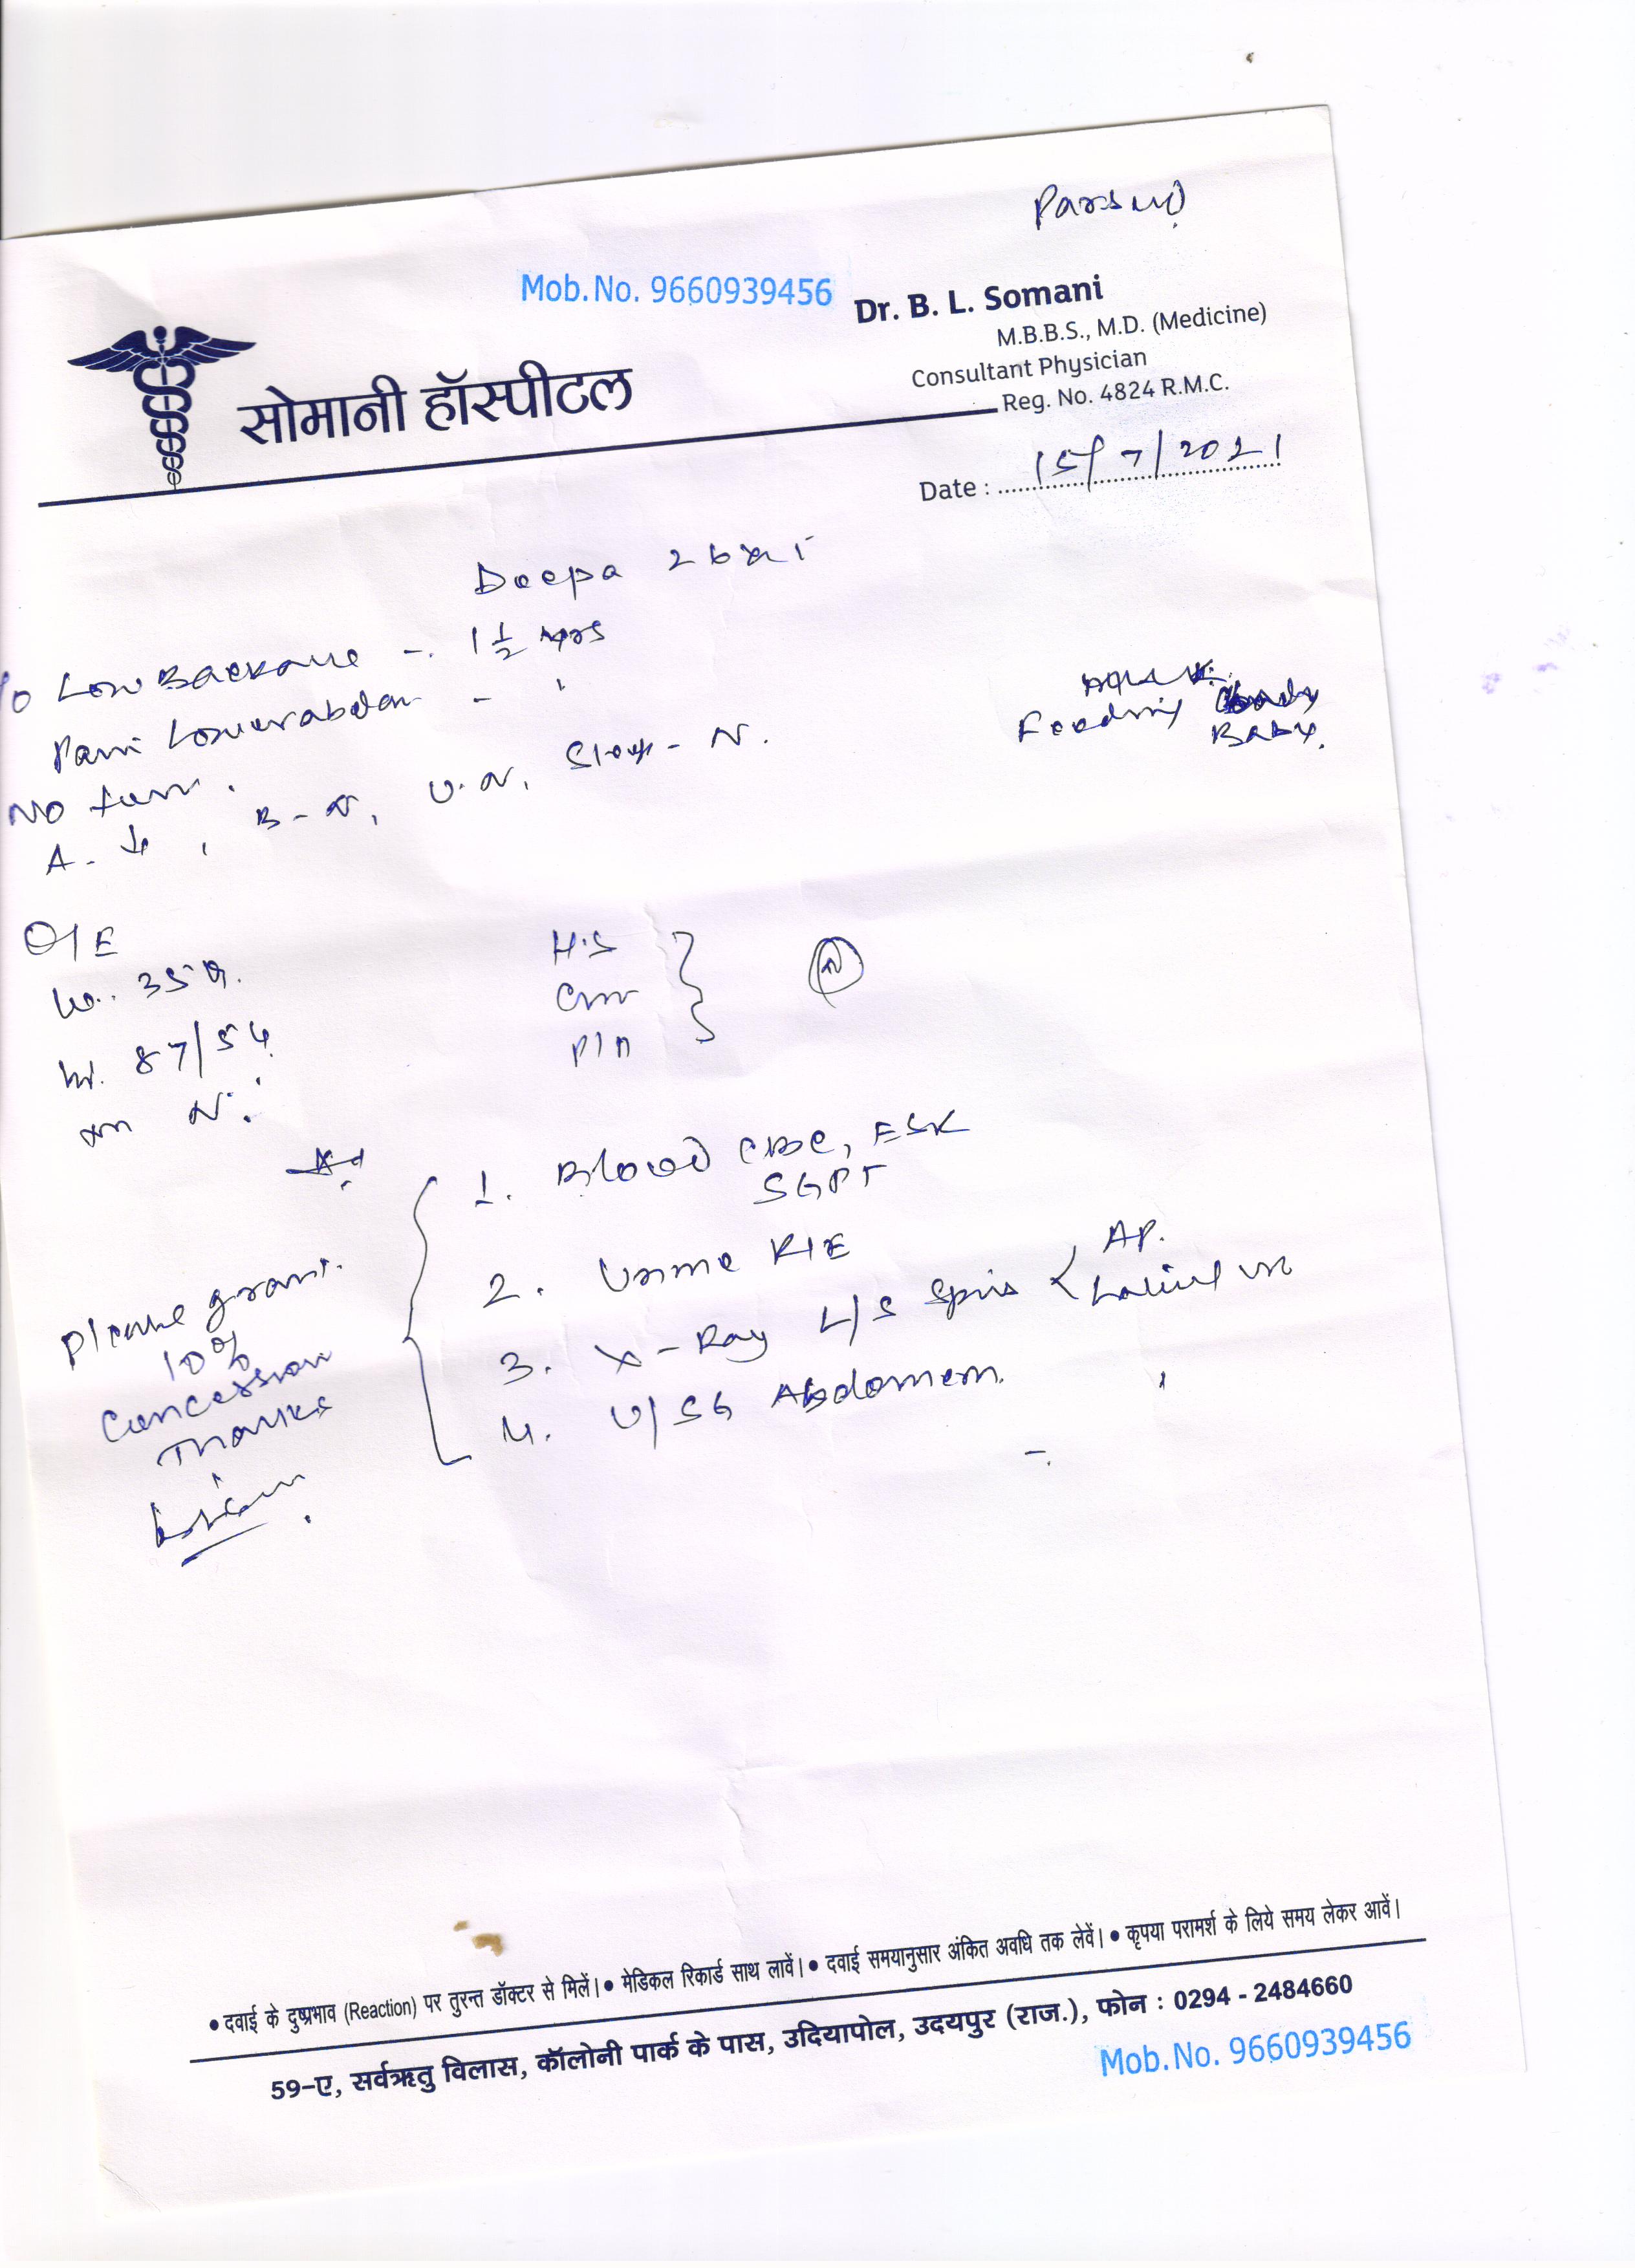 Mob.No. 9660939456
Dr. B. L. Somani
M.B.B.S., M.D. (Medicine)
Consultant Physician
Reg. No. 4824 R.M.C.
सोमानी हॉस्पीटल
Date : 15/7/2021
Deepa 26
Low Backache - 1 1/2
Pain Lower abdom - "
Feeding
Baby.
No
A - ↓, B - N, U. N, Sleep - N.
O/E
87/54
N.
H.S
P/A
N
1. Blood CBC, ESR
SGPT
2. Urine R/E
3. X-Ray L/S Spine < AP.
Lateral
4. U/SG Abdomen.
Please grant
10%
Concession
Thanks
• दवाई के दुष्प्रभाव (Reaction) पर तुरन्त डॉक्टर से मिलें। • मेडिकल रिकार्ड साथ लावें। • दवाई समयानुसार अंकित अवधि तक लेवें। • कृपया परामर्श के लिये समय लेकर आवें।
59-ए, सर्वऋतु विलास, कॉलोनी पार्क के पास, उदियापोल, उदयपुर (राज.), फोन : 0294 - 2484660
Mob.No. 9660939456